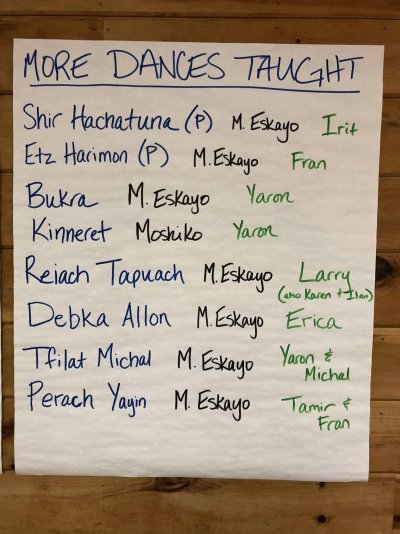 MORE DANCES TAUGHT
Shir Hachatuna (P) M. Eskayo Irit
Etz Harimon (P) M. Eskayo Fran
Bukra M. Eskayo Yaron
Kinneret Moshiko Yaron
Reiach Tapuach M. Eskayo Larry
(also Karen + Ilan)
Debka Allon M. Eskayo Erica
Tfilat Michal M. Eskayo Yaron &
Michal
Perach Yayin M. Eskayo Tamir &
Fran